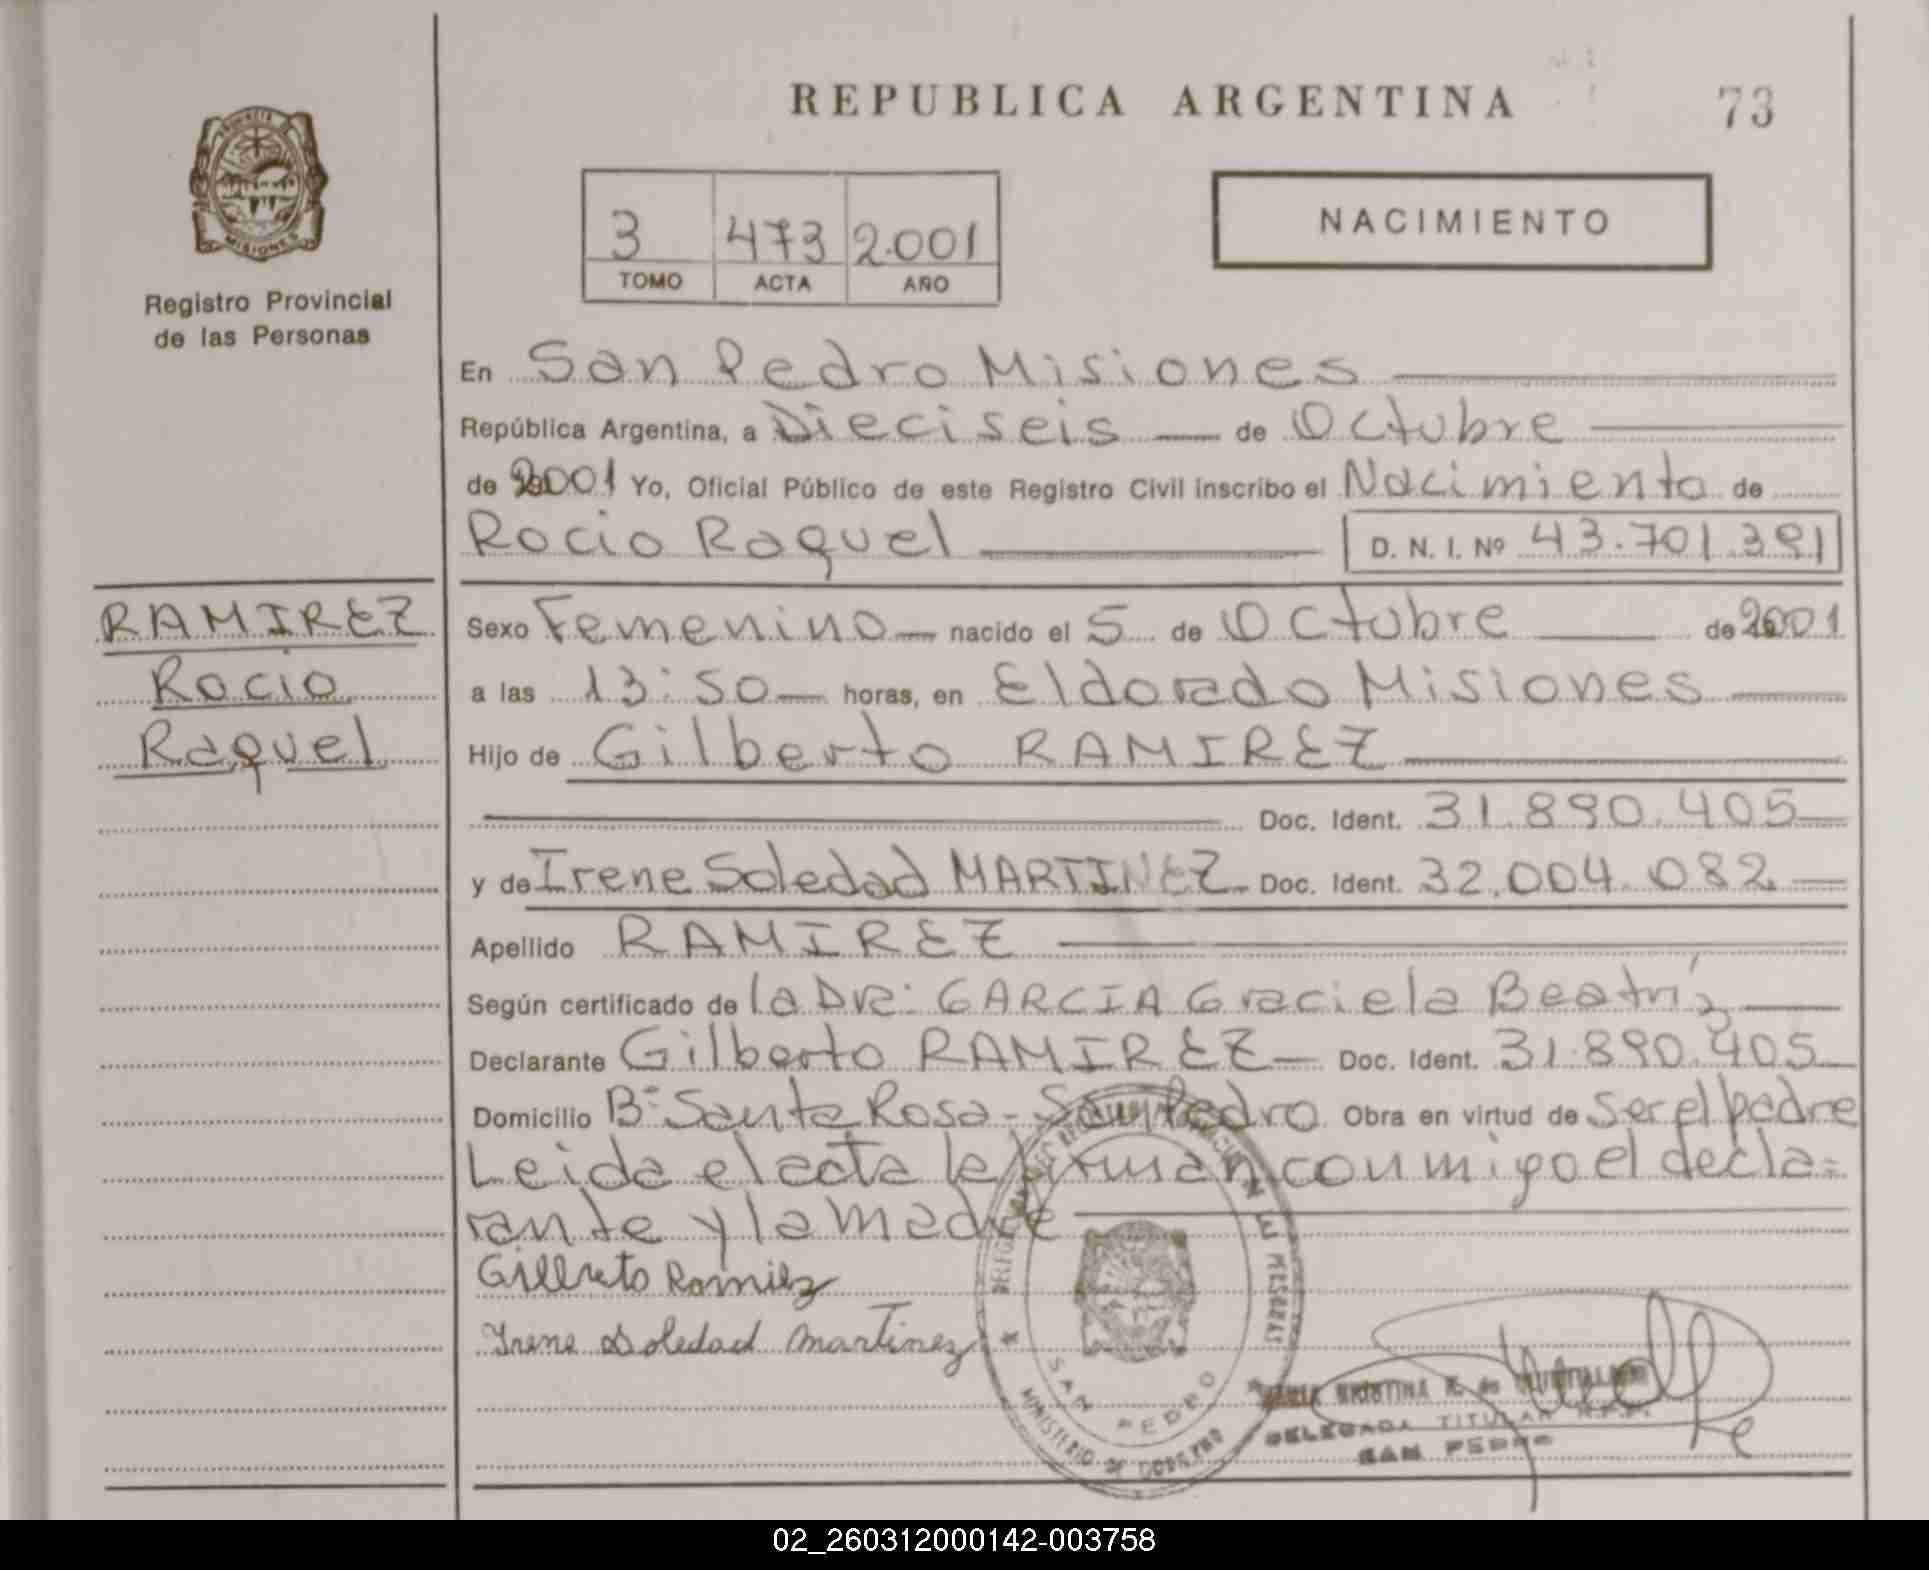 REPUBLICA ARGENTINA
73
PROVINCIA DE
MISIONES
Registro Provincial
de las Personas
3 473 2.001
TOMO ACTA AÑO
NACIMIENTO
En San Pedro Misiones
República Argentina, a Dieciseis de Octubre
de 2001 Yo, Oficial Público de este Registro Civil inscribo el Nacimiento de
Rocio Raquel D. N. I. Nº 43.701.391
RAMIREZ
Rocio
Raquel
Sexo Femenino nacido el 5 de Octubre de 2001
a las 13:50 horas, en Eldorado Misiones
Hijo de Gilberto RAMIREZ
Doc. Ident. 31.890.405
y de Irene Soledad MARTINEZ Doc. Ident. 32.004.082
Apellido RAMIREZ
Según certificado de la Dra: GARCIA Graciela Beatríz
Declarante Gilberto RAMIREZ Doc. Ident. 31.890.405
Domicilio Bº Santa Rosa - San Pedro Obra en virtud de Ser el padre
Leida el acta la firman conmigo el decla=
rante y la madre
Gilberto Ramirez
Irene Soledad Martinez
SAN PEDRO
MINISTERIO DE GOBIERNO
DELEGADA TITULAR R.P.P.
SAN PEDRO
02_260312000142-003758